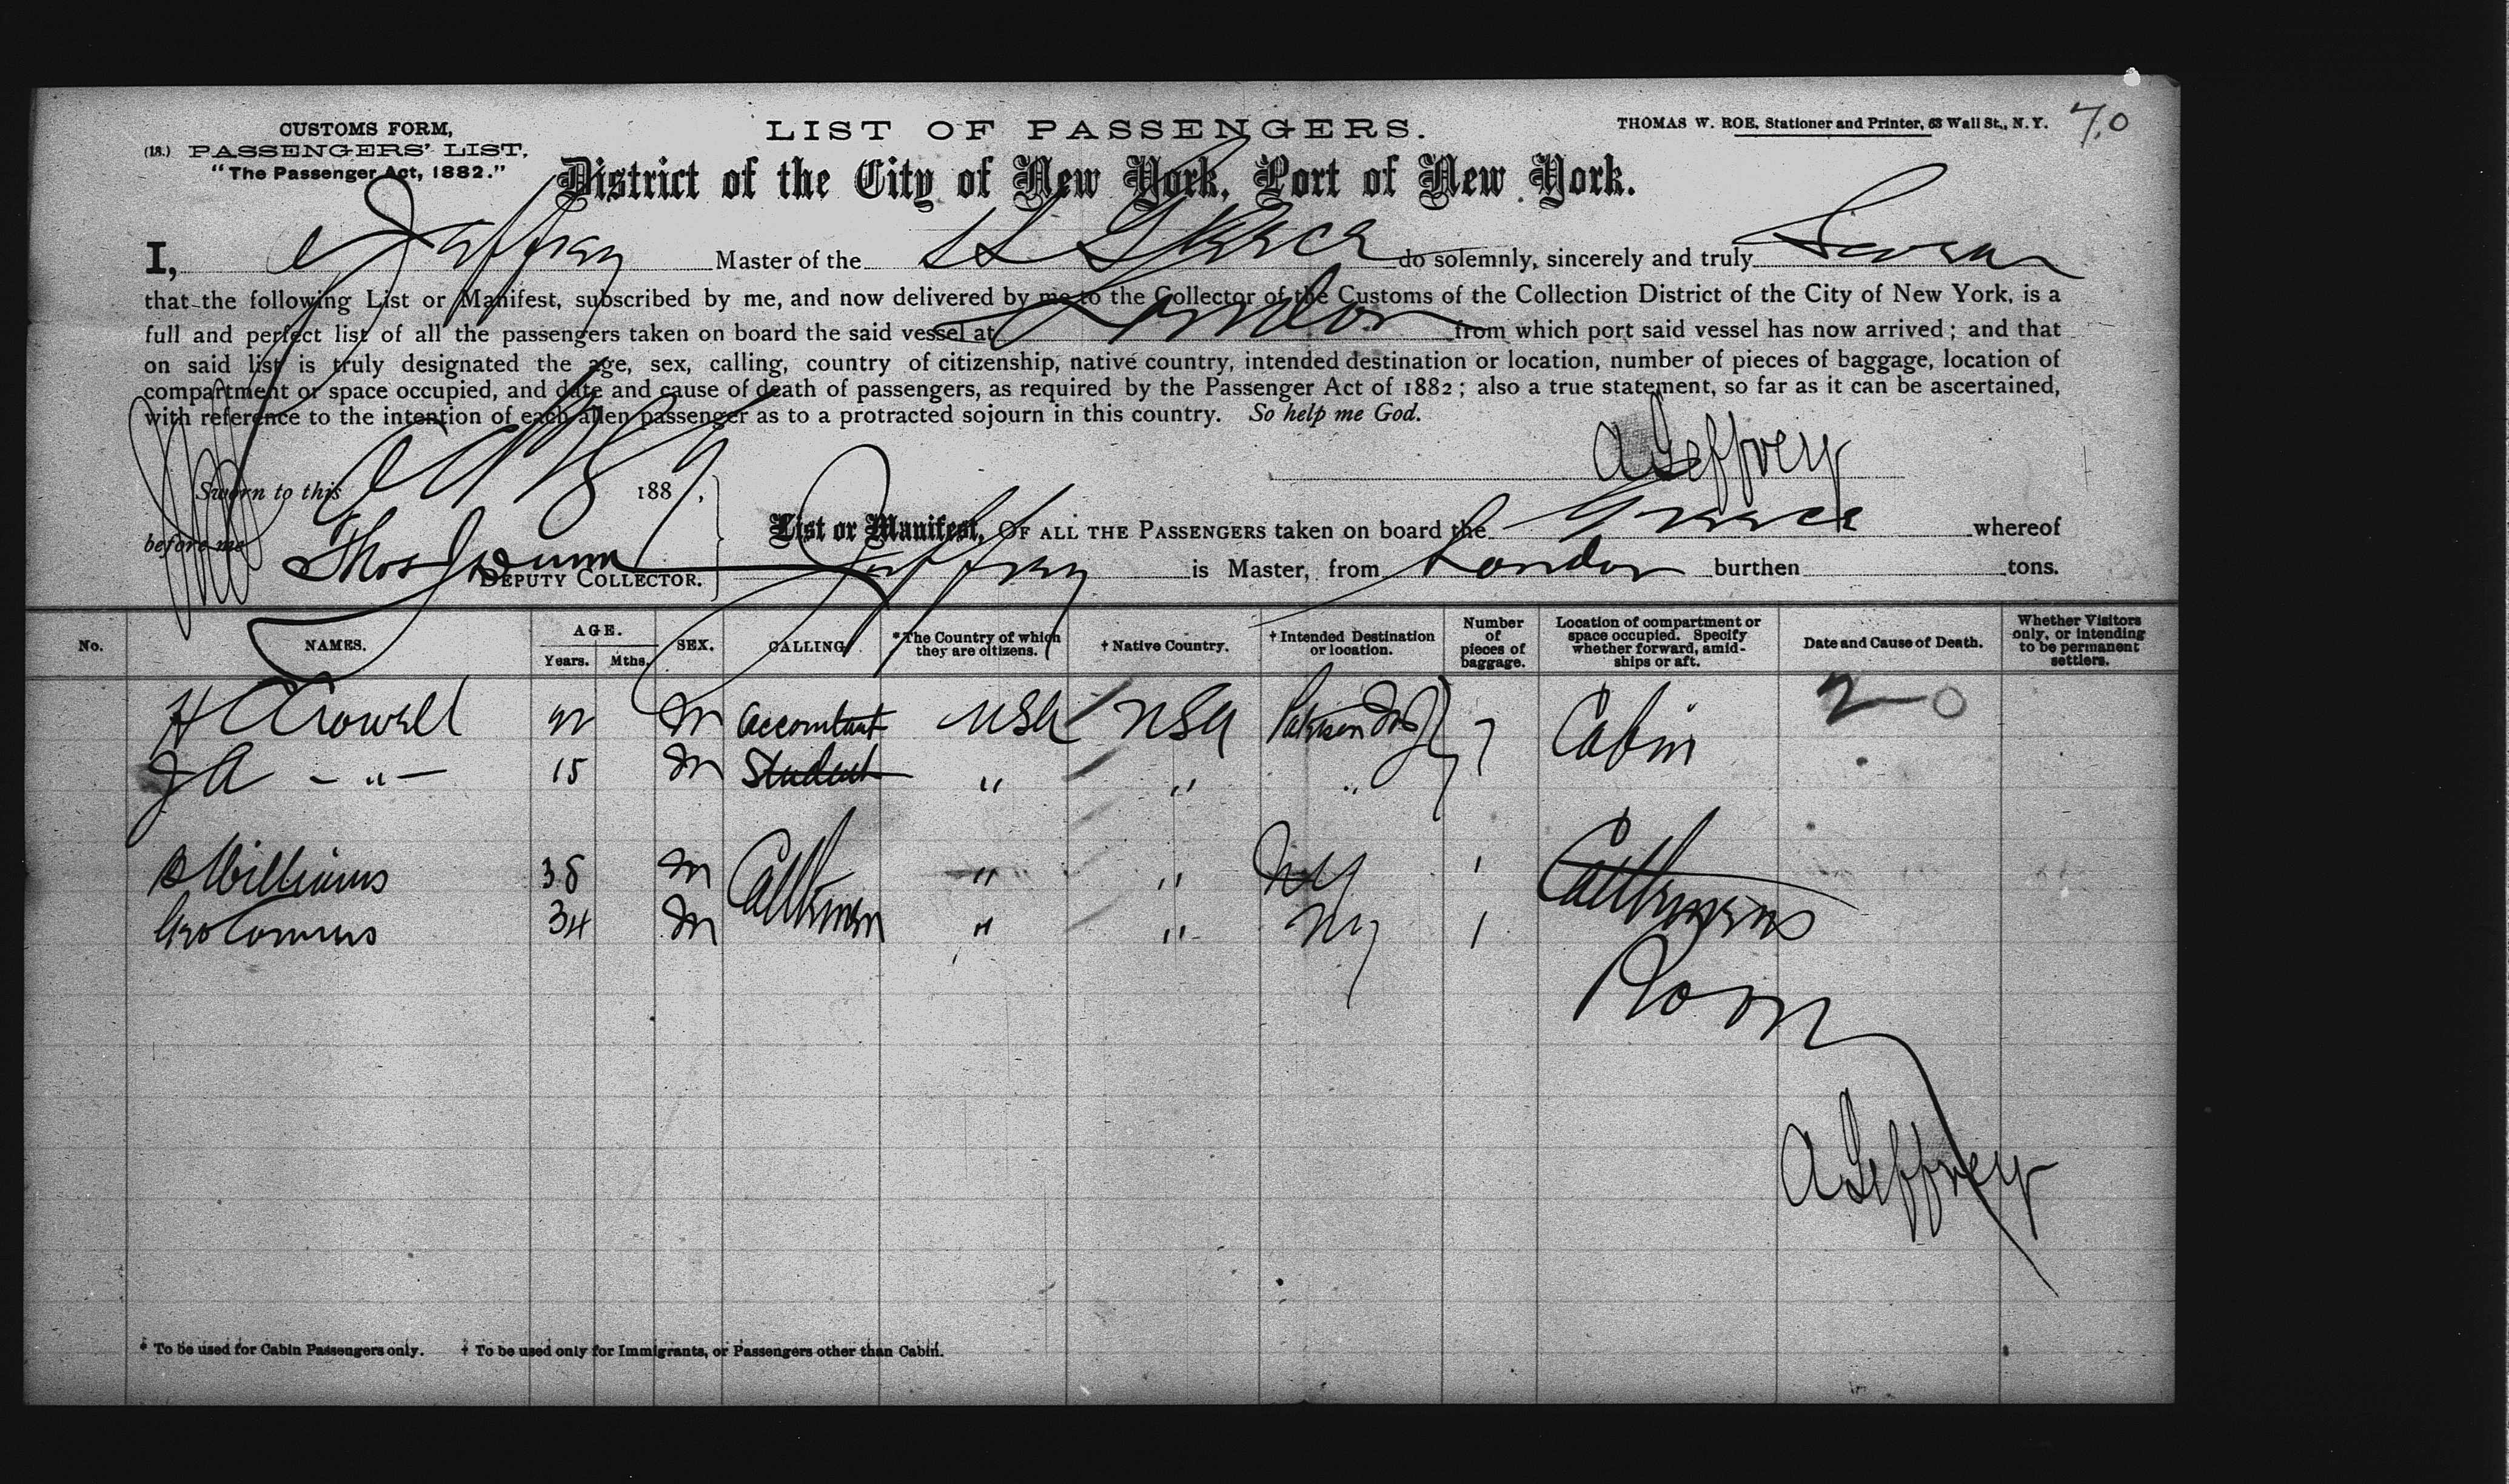 CUSTOMS FORM,
(18.) PASSENGERS' LIST,
"The Passenger Act, 1882."
LIST OF PASSENGERS.
THOMAS W. ROE, Stationer and Printer, 63 Wall St., N.Y.
70
District of the City of New York, Port of New York.
I, Jeffrey Master of the SS Greece do solemnly, sincerely and truly Swear
that the following List or Manifest, subscribed by me, and now delivered by me to the Collector of the Customs of the Collection District of the City of New York, is a
full and perfect list of all the passengers taken on board the said vessel at London from which port said vessel has now arrived; and that
on said list is truly designated the age, sex, calling, country of citizenship, native country, intended destination or location, number of pieces of baggage, location of
compartment or space occupied, and date and cause of death of passengers, as required by the Passenger Act of 1882; also a true statement, so far as it can be ascertained,
with reference to the intention of each alien passenger as to a protracted sojourn in this country. So help me God.
A Jeffrey
Sworn to this 188
before me Thos J Dunn
DEPUTY COLLECTOR.
List or Manifest, OF ALL THE PASSENGERS taken on board the Greece whereof
Jeffrey is Master, from London burthen tons.
No. NAMES. AGE. Years. Mths. SEX. CALLING. *The Country of which they are citizens. † Native Country. † Intended Destination or location. Number of pieces of baggage. Location of compartment or space occupied. Specify whether forward, amidships or aft. Date and Cause of Death. Whether Visitors only, or intending to be permanent settlers.
H Crowell M Accountant USA USA 7 Cabin 2-0
J A - " - 15 M Student " " "
B Williams 38 M Cattlemen " " NY 1 Cattlemens
Geo 34 M " " NY 1
Room
A Jeffrey
* To be used for Cabin Passengers only. † To be used only for Immigrants, or Passengers other than Cabin.